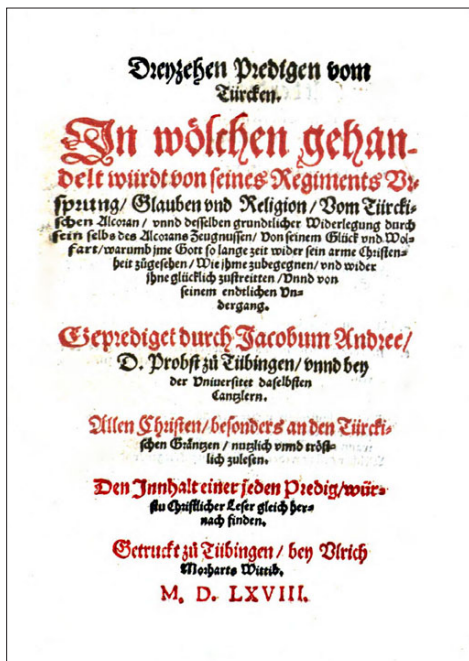 Dreyzehen Predigen vom
Türcken.
In wölchen gehan-
delt würdt von seines Regiments Vr-
sprung/ Glauben vnd Religion/ Vom Türcki-
schen Alcoran/ vnnd desselben grundtlicher Widerlegung durch
sein selbs des Alcorans Zeugnussen/ Von seinem Glück vnd Wol-
fart/ warumb jme Gott so lange zeit wider sein arme Christen-
heit zügesehen/ Wie jhme zubegegnen/ vnd wider
jhne glücklich zustreitten/ Vnnd von
seinem endtlichen Vn-
dergang.
Geprediget durch Jacobum Andree/
D. Probst zů Tübingen/ vnnd bey
der Vniuersitet daselbsten
Cantzlern.
Allen Christen/ besonders an den Türcki-
schen Gräntzen/ nutzlich vnnd tröst-
lich zulesen.
Den Innhalt einer jeden Predig/ wür-
stu Christlicher Leser gleich her-
nach finden.
Getruckt zů Tübingen/ bey Vlrich
Morharts Wittib.
M. D. LXVIII.